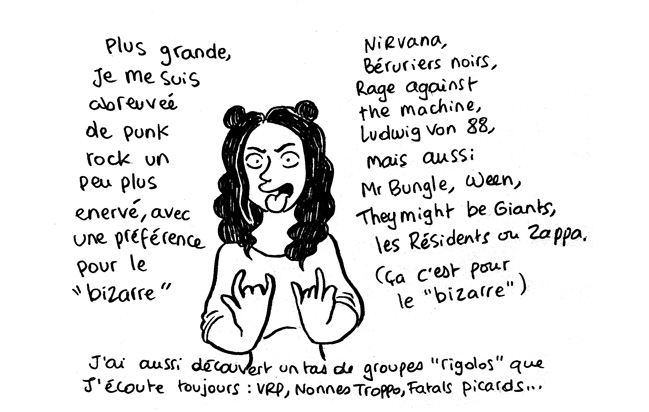 Plus grande,
je me suis
abreuveé
de punk
rock un
peu plus
enervé, avec
une préférence
pour le
"bizarre"
Nirvana,
Béruriers noirs,
Rage against
the machine,
Ludwig von 88,
mais aussi
Mr Bungle, Ween,
They might be Giants,
les Résidents ou Zappa.
(ça c'est pour
le "bizarre")
J'ai aussi découvert un tas de groupes "rigolos" que
J'écoute toujours : VRP, Nonnes Troppo, Fatals picards...